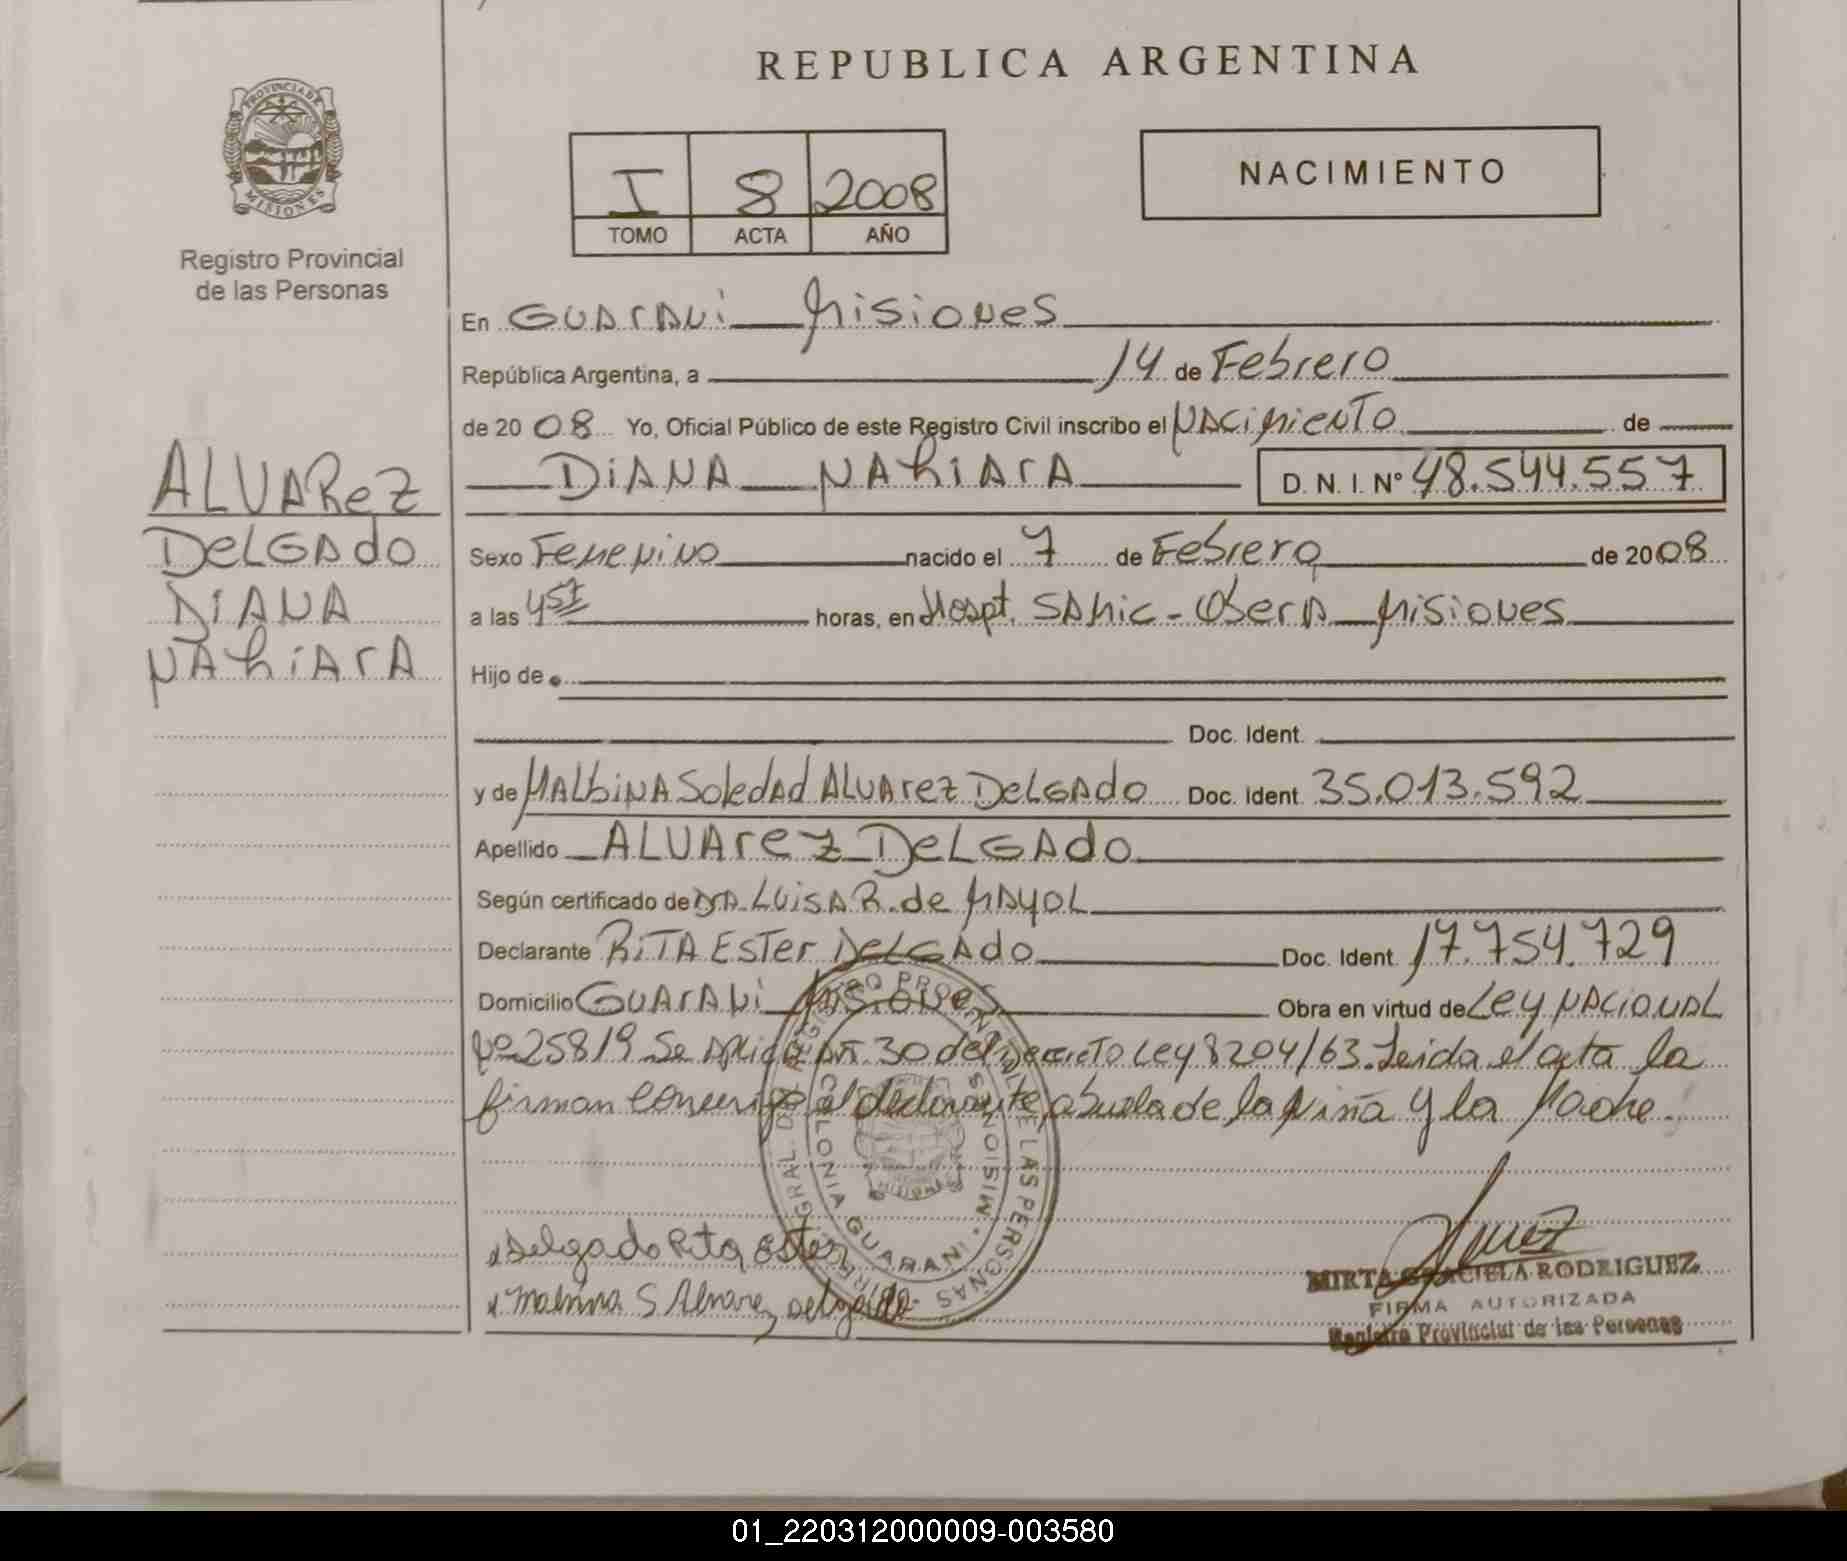 REPUBLICA ARGENTINA
PROVINCIA DE
MISIONES
Registro Provincial
de las Personas
I 8 2008
TOMO ACTA AÑO
NACIMIENTO
En GUARANI MISIONES
República Argentina, a 14 de Febrero
de 2008 Yo, Oficial Público de este Registro Civil inscribo el NACIMIENTO de
DIANA NAHIARA D. N. I. Nº 48.544.557
ALVAREZ
DELGADO
DIANA
NAHIARA
Sexo Femenino nacido el 7 de Febrero de 2008
a las horas, en Hospt. SAMIC - OberA MISIONES
Hijo de
Doc. Ident.
y de MALBINA Soledad ALVAREZ DELGADO Doc. Ident. 35.013.592
Apellido ALVAREZ DELGADO
Según certificado de DRA. LUISA R. de MAYOL
Declarante RITA ESTER DELGADO Doc. Ident. 17.754.729
Domicilio GUARANI MISIONES Obra en virtud de Ley NACIONAL
Nº 25819 Se Aplica Art. 30 del Decreto Ley 8204/63. Leida el acta la
firman conmigo el declarante abuela de la Niña y la Madre.
REGISTRO PROVINCIAL DE LAS PERSONAS
COLONIA GUARANI - MISIONES
MISIONES
Delgado Rita Ester
Malvina S Alvarez Delgado
MIRTA GRACIELA RODRIGUEZ
FIRMA AUTORIZADA
Registro Provincial de las Personas
01_220312000009-003580